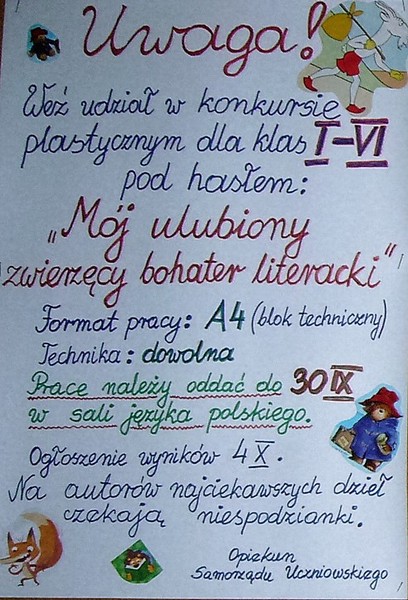 Uwaga!
Weź udział w konkursie
plastycznym dla klas I-VI
pod hasłem:
„Mój ulubiony
zwierzęcy bohater literacki"
Format pracy: A4 (blok techniczny)
Technika: dowolna
Prace należy oddać do 30 IX
w sali języka polskiego.
Ogłoszenie wyników 4 X.
Na autorów najciekawszych dzieł
czekają niespodzianki.
Opiekun
Samorządu Uczniowskiego